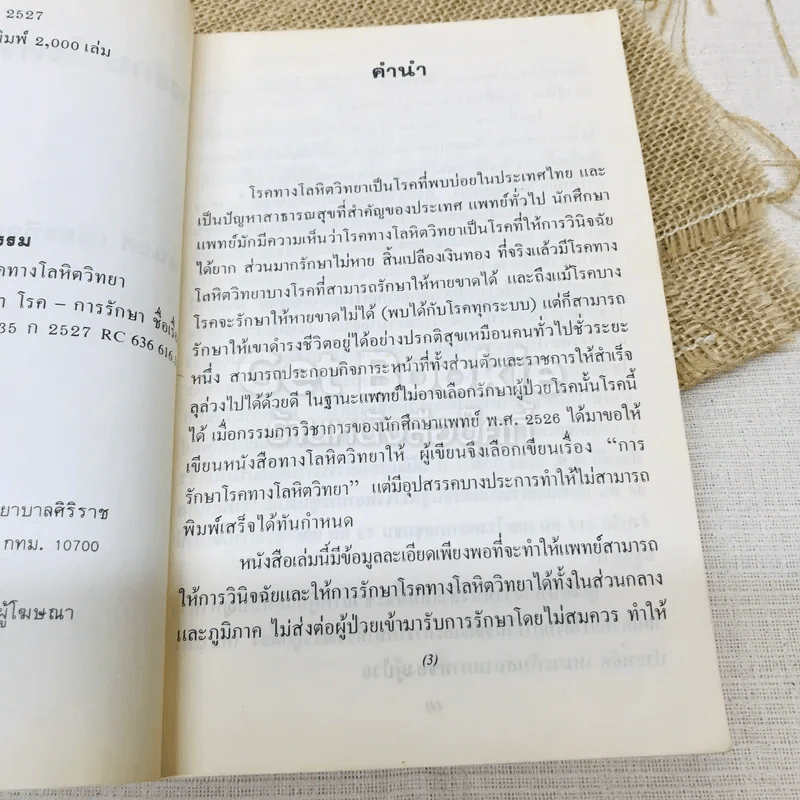 2527
พิมพ์ 2,000 เล่ม
รรม
คทางโลหิตวิทยา
โรค – การรักษา
35 ก 2527 RC 636 616.
ยาบาลศิริราช
กทม. 10700
ผู้โฆษณา
คำนำ
โรคทางโลหิตวิทยาเป็นโรคที่พบบ่อยในประเทศไทย และ
เป็นปัญหาสาธารณสุขที่สำคัญของประเทศ แพทย์ทั่วไป นักศึกษา
แพทย์มักมีความเห็นว่าโรคทางโลหิตวิทยาเป็นโรคที่ให้การวินิจฉัย
ได้ยาก ส่วนมากรักษาไม่หาย สิ้นเปลืองเงินทอง ที่จริงแล้วมีโรคทาง
โลหิตวิทยาบางโรคที่สามารถรักษาให้หายขาดได้ และถึงแม้โรคบาง
โรคจะรักษาให้หายขาดไม่ได้ (พบได้กับโรคทุกระบบ) แต่ก็สามารถ
รักษาให้เขาดำรงชีวิตอยู่ได้อย่างปรกติสุขเหมือนคนทั่วไปชั่วระยะ
หนึ่ง สามารถประกอบกิจภาระหน้าที่ทั้งส่วนตัวและราชการให้สำเร็จ
ลุล่วงไปได้ด้วยดี ในฐานะแพทย์ไม่อาจเลือกรักษาผู้ป่วยโรคนั้นโรคนี้
ได้ เมื่อกรรมการวิชาการของนักศึกษาแพทย์ พ.ศ. 2526 ได้มาขอให้
เขียนหนังสือทางโลหิตวิทยาให้ ผู้เขียนจึงเลือกเขียนเรื่อง “การ
รักษาโรคทางโลหิตวิทยา” แต่มีอุปสรรคบางประการทำให้ไม่สามารถ
พิมพ์เสร็จได้ทันกำหนด
หนังสือเล่มนี้มีข้อมูลละเอียดเพียงพอที่จะทำให้แพทย์สามารถ
ให้การวินิจฉัยและให้การรักษาโรคทางโลหิตวิทยาได้ทั้งในส่วนกลาง
และภูมิภาค ไม่ส่งต่อผู้ป่วยเข้ามารับการรักษาโดยไม่สมควร ทำให้
(3)